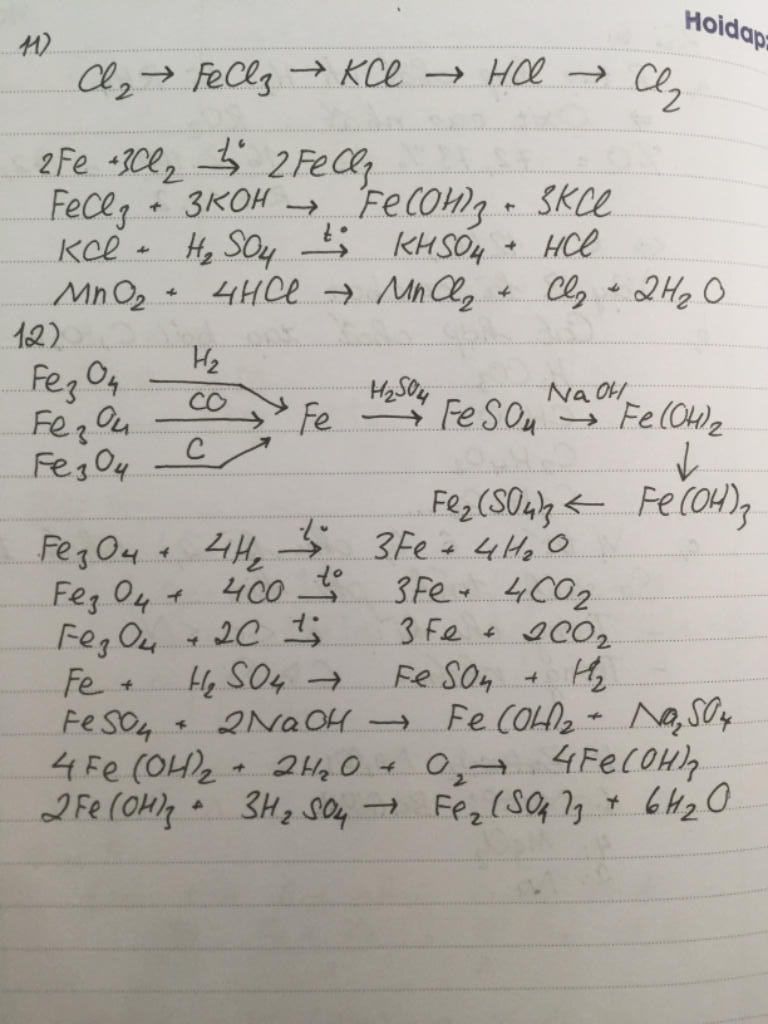 Hoidap
11)
Cl₂ → FeCl₃ → KCl → HCl → Cl₂
2Fe + 3Cl₂ —t°→ 2FeCl₃
FeCl₃ + 3KOH → Fe(OH)₃ + 3KCl
KCl + H₂SO₄ —t°→ KHSO₄ + HCl
MnO₂ + 4HCl → MnCl₂ + Cl₂ + 2H₂O
12)
Fe₃O₄ —H₂→
Fe₃O₄ —CO→ Fe —H₂SO₄→ FeSO₄ —NaOH→ Fe(OH)₂
Fe₃O₄ —C→ ↓
Fe₂(SO₄)₃ ← Fe(OH)₃
Fe₃O₄ + 4H₂ —t°→ 3Fe + 4H₂O
Fe₃O₄ + 4CO —t°→ 3Fe + 4CO₂
Fe₃O₄ + 2C —t°→ 3Fe + 2CO₂
Fe + H₂SO₄ → FeSO₄ + H₂
FeSO₄ + 2NaOH → Fe(OH)₂ + Na₂SO₄
4Fe(OH)₂ + 2H₂O + O₂ → 4Fe(OH)₃
2Fe(OH)₃ + 3H₂SO₄ → Fe₂(SO₄)₃ + 6H₂O